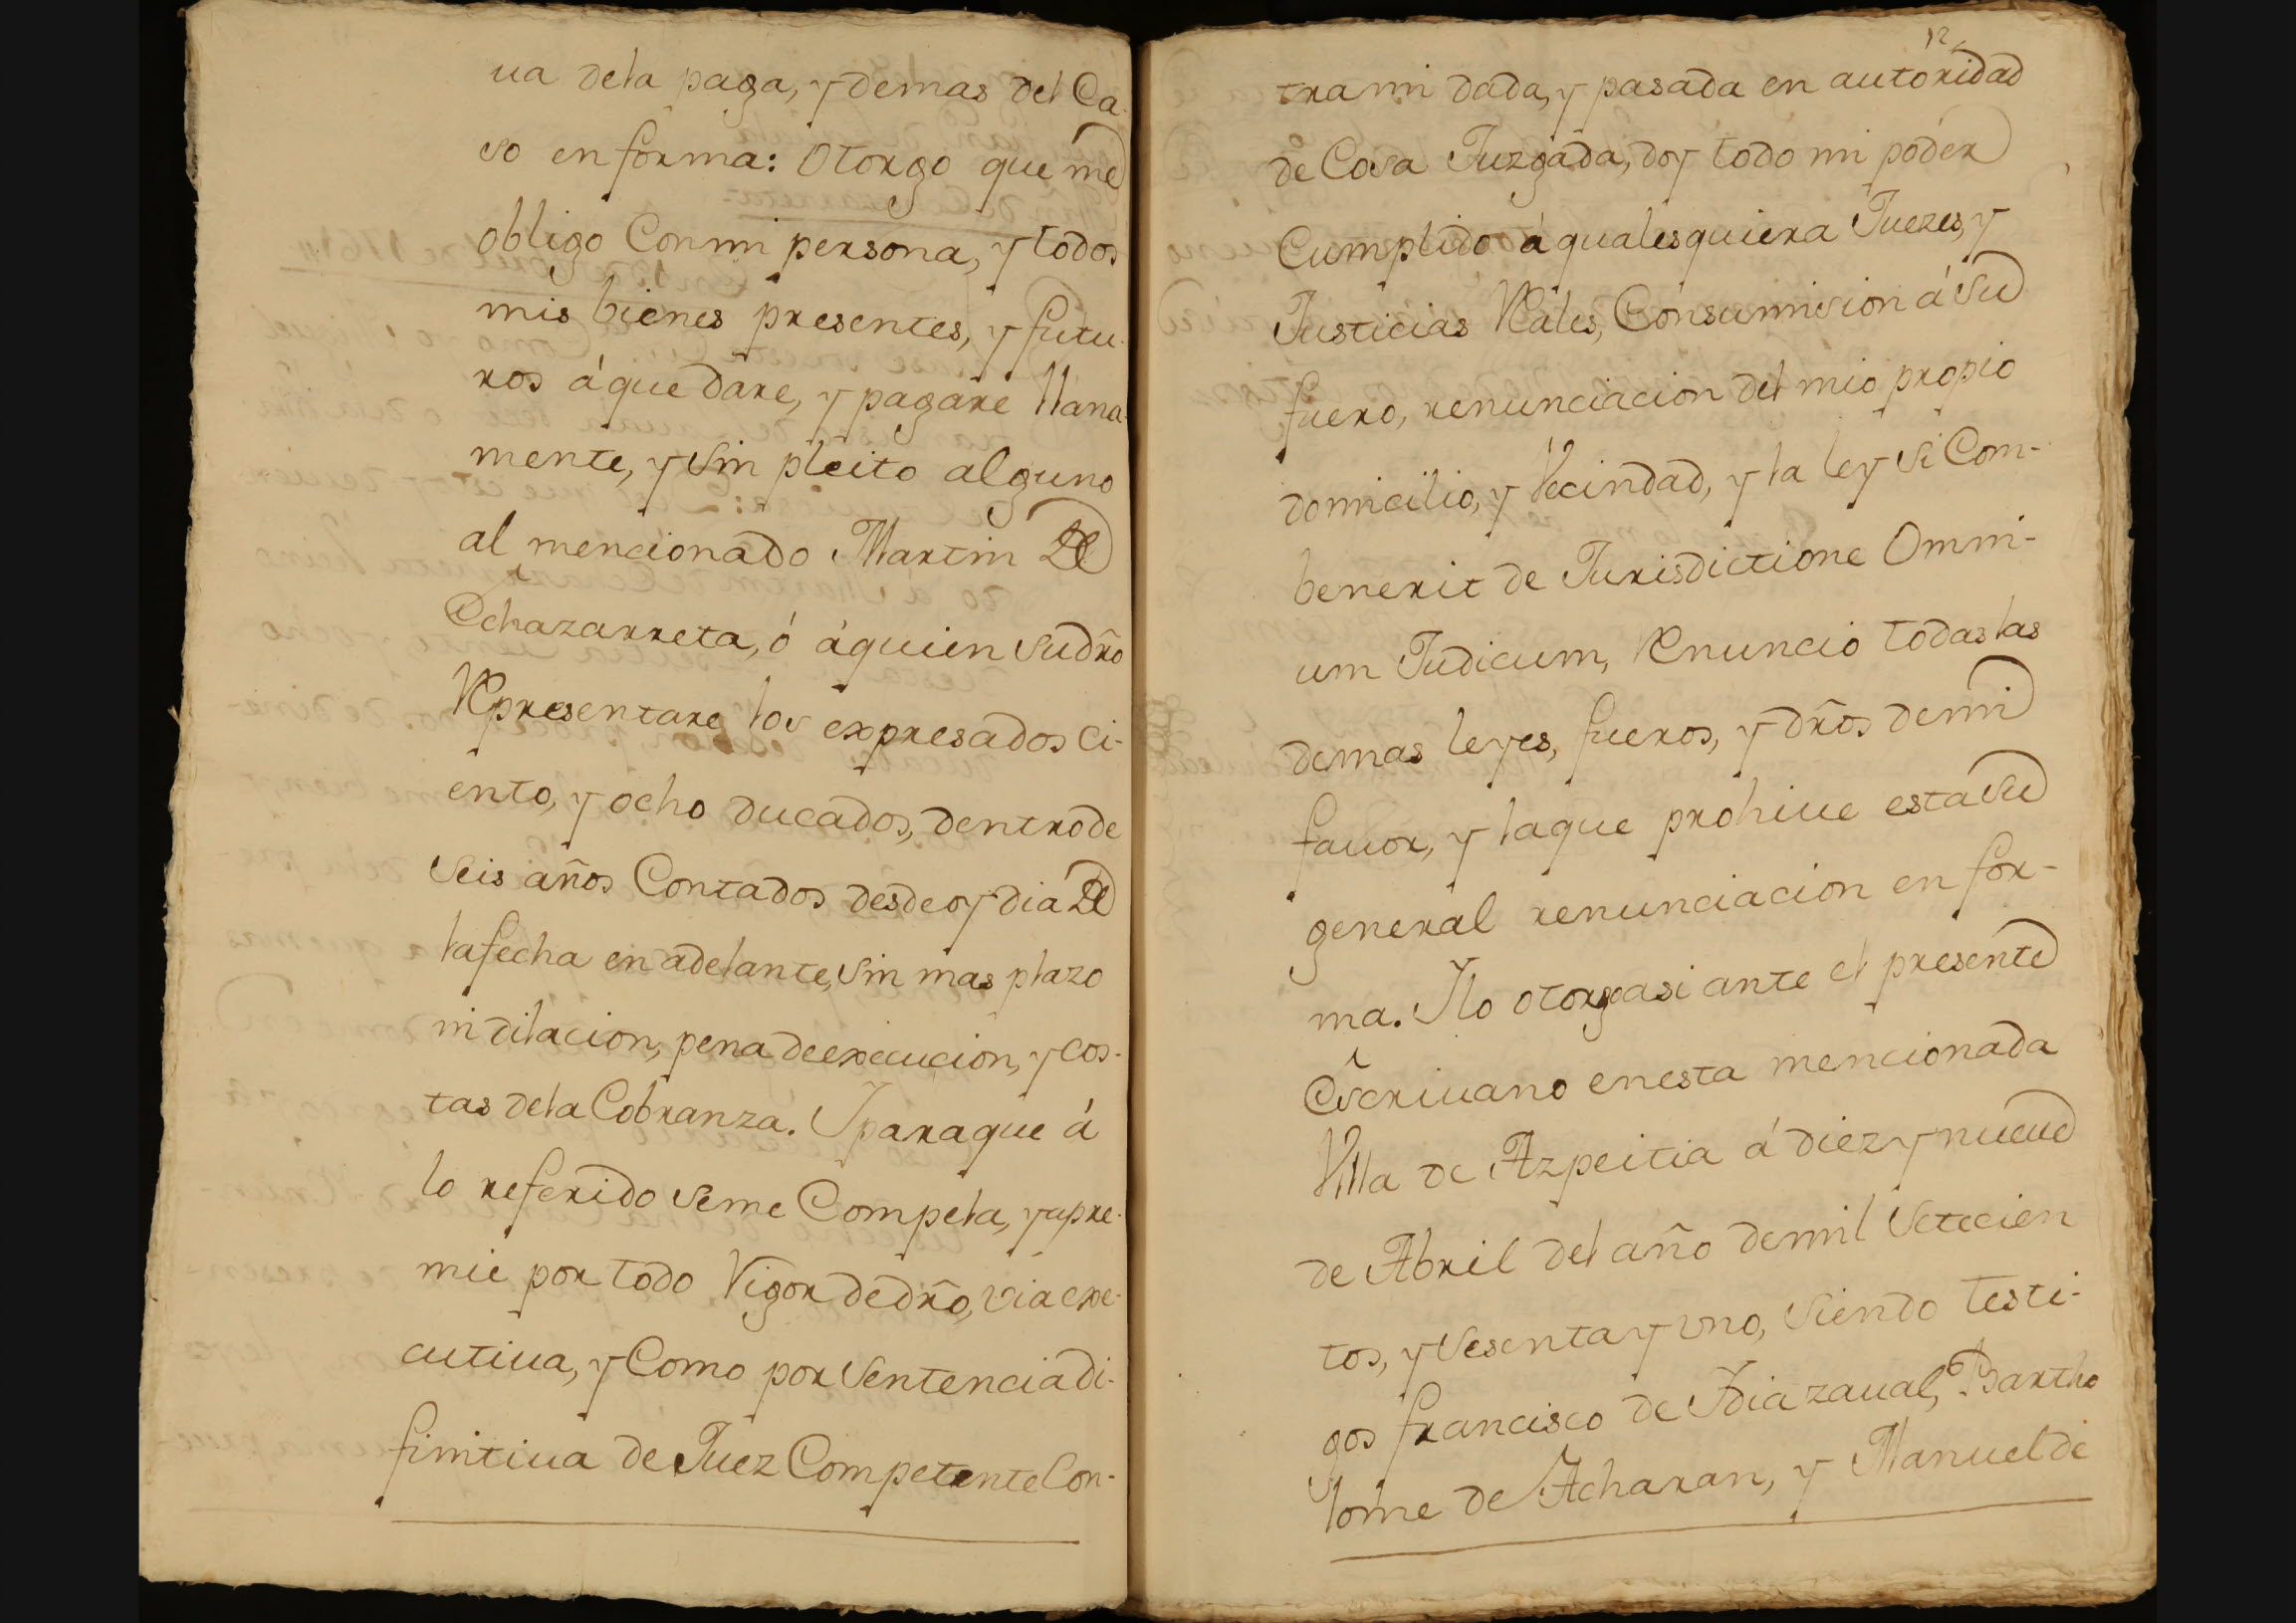 ua dela paga, y demas del Ca-
so en forma: Otorgo que me
obligo Con mi persona, y todos
mis bienes presentes, y futu-
ros á que dare, y pagare llana-
mente, y sin pleito alguno
al mencionado Martin de
Echazarreta, ó áquien su dr̃o
Representare los expresados ci-
ento, y ocho ducados, dentro de
seis años Contados desde oy dia de
la fecha en adelante, sin mas plazo
ni dilacion, pena de execucion, y cos-
tas dela Cobranza. Y para que á
lo referido se me Compela, y apre-
mie por todo Vigor de dr̃o, via exe-
cutiua, y Como por sentencia di-
finitiua de Juez Competente Con-
12
tra mi dada, y pasada en autoridad
de Cosa Juzgada, doy todo mi poder
Cumplido á qualesquiera Juezes, y
Justicias Rales, Consumision á su
fuero, renunciacion del mio propio
domicilio, y Vecindad, y la ley si Com-
benerit de Jurisdictione Omni-
um Judicum, Renuncio todas las
demas leyes, fueros, y dr̃os de mi
fauor, y la que prohiue esta su
general renunciacion en for-
ma. Y lo otorgo asi ante el presente
Escriuano en esta mencionada
Villa de Azpeitia á diez y nueue
de Abril del año de mil setecien
tos, y sesenta y uno, siendo testi-
gos francisco de Ydiazaual, Bartho
lome de Acharan, y Manuel de